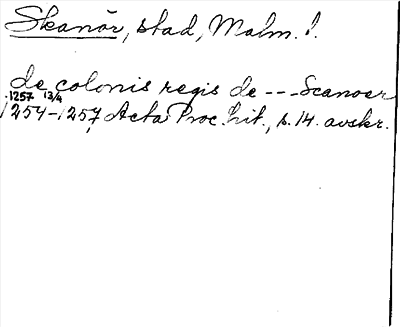 Skanör, stad, Malm. l.
de colonis regis de --- Scanoer
1257 13/4
1254-1257, Acta Proc. Lit., s. 14. avskr.